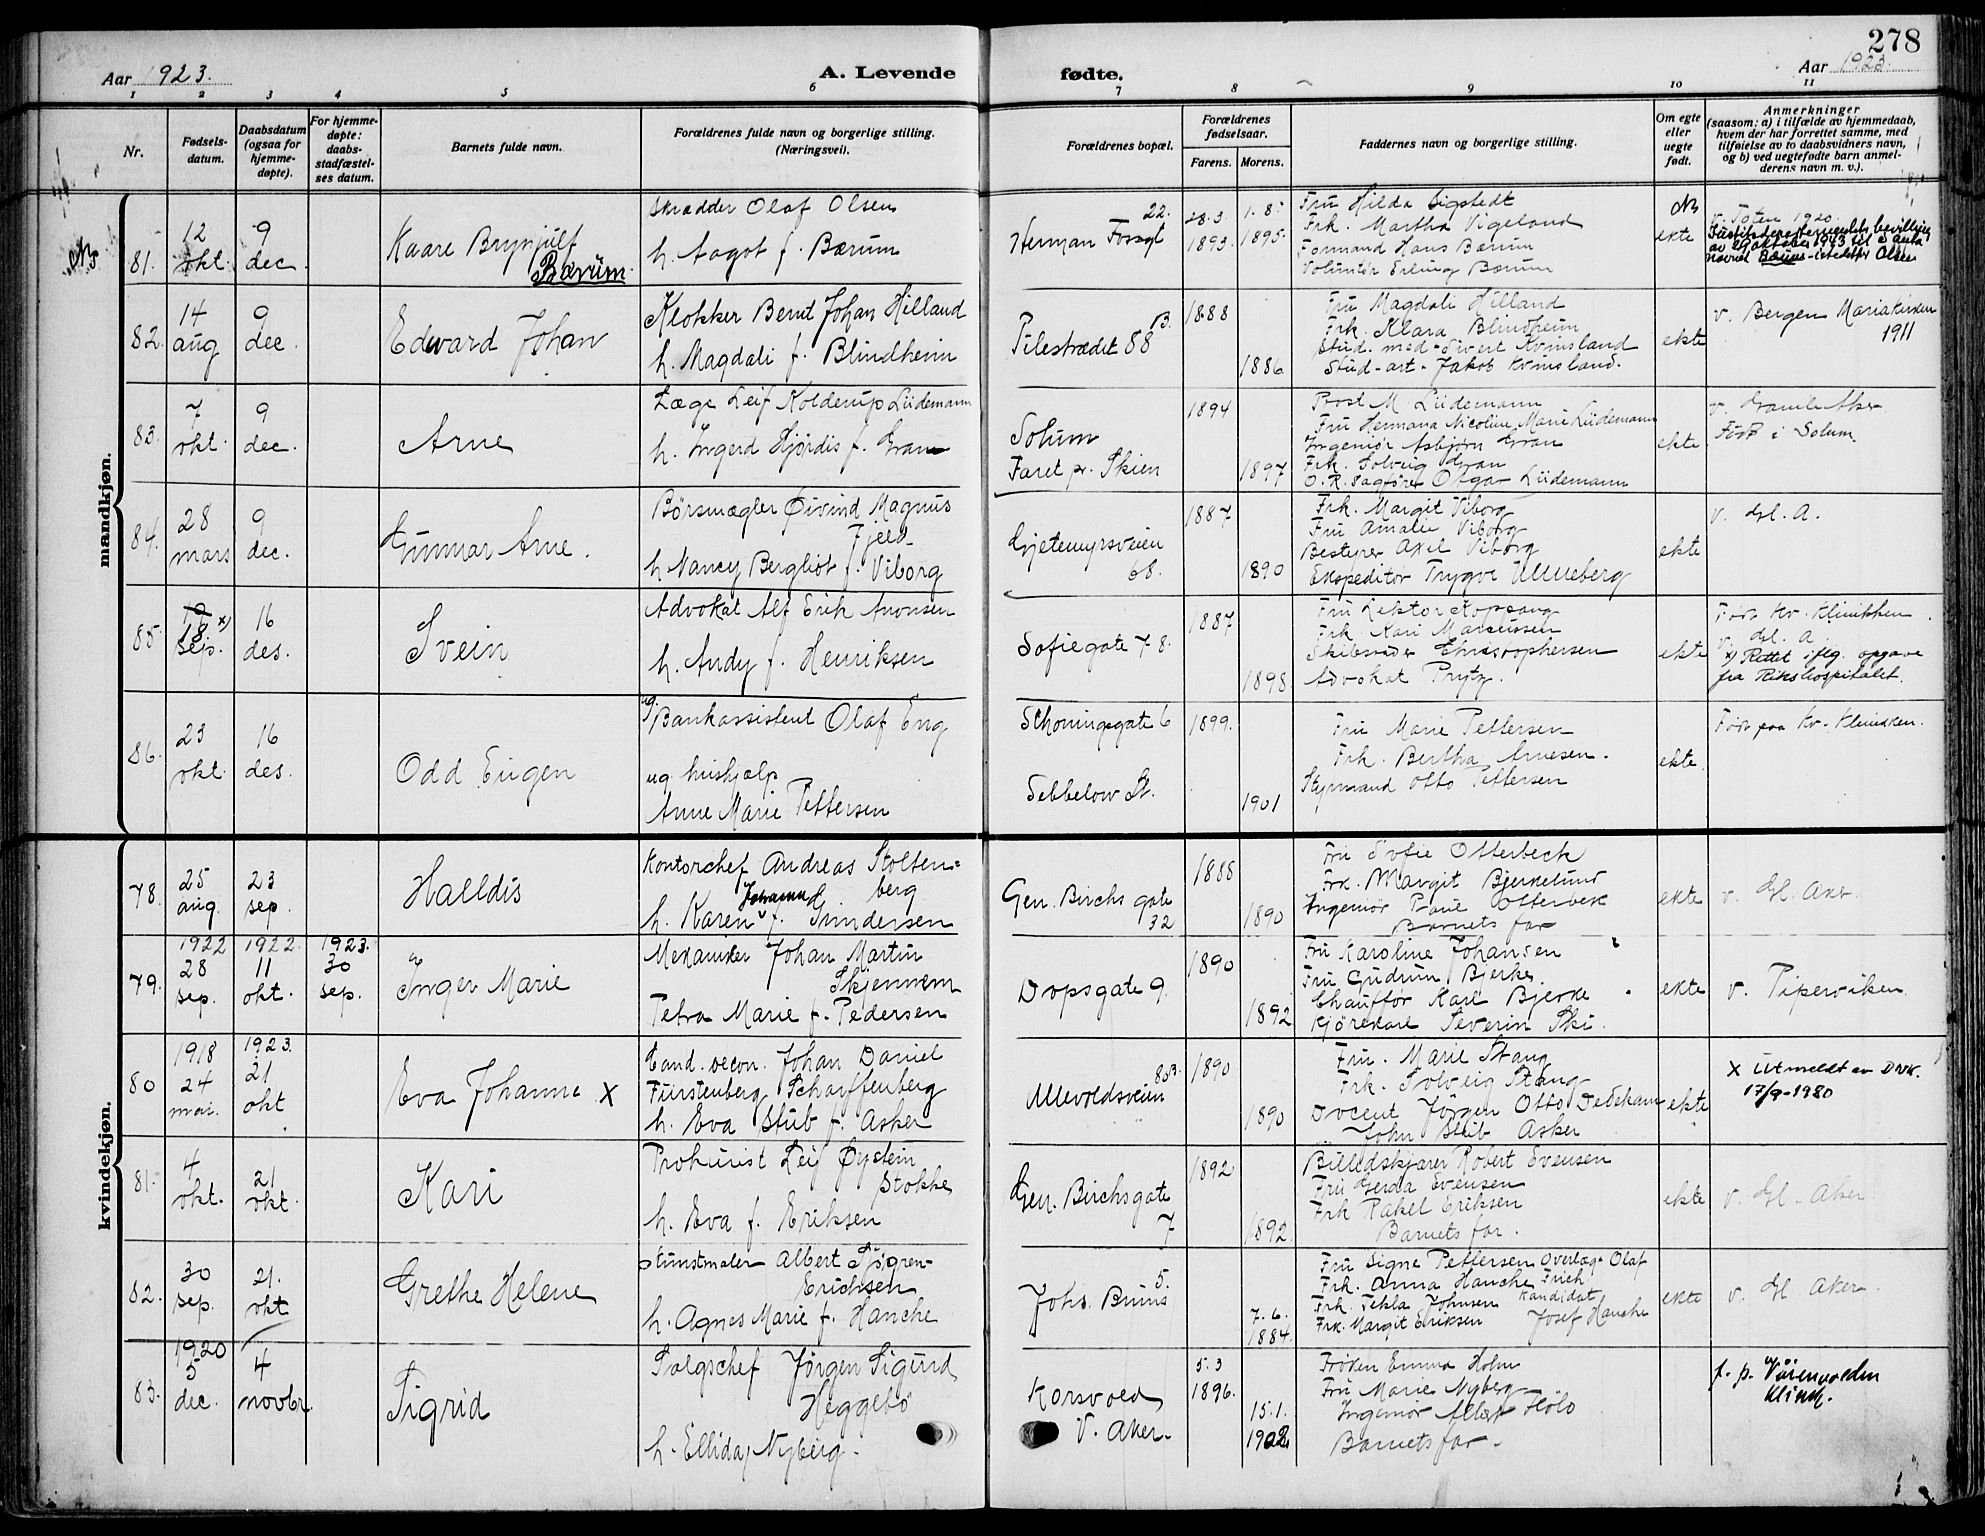 278
Aar 1923.
A. Levende fødte.
Aar 1923.
1 2 3 4 5 6 7 8 9 10 11
Nr.
Fødsels-
datum.
Daabsdatum
(ogsaa for
hjemme-
døpte).
For hjemme-
døpte:
daabs-
stadfæstel-
ses datum.
Barnets fulde navn.
Forældrenes fulde navn og borgerlige stilling.
(Næringsvei).
Forældrenes bopæl.
Forældrenes
fødselsaar.
Farens. Morens.
Faddernes navn og borgerlige stilling.
Om egte
eller
uegte
født.
Anmerkninger
(saasom: a) i tilfælde av hjemmedaab,
hvem der har forrettet samme, med
tilføielse av to daabsvidners navn,
og b) ved uegtefødte barn anmel-
derens navn m. v.).
mandkjøn.
81.
12
okt.
9
dec.
Kaare Brynjulf
Bærum.
Skrædder Olaf Olsen
h. Aagot f. Bærum
22.
Herman Fossgt
28.3.
1893.
1.8.
1895.
Fru Hilda Sigstedt
Frk. Martha Vigeland
Formand Hans Bærum
Voluntør Erling Bærum
NB
ekte
v. Toten 1920.
Justitsdepartementets bevilling
av 29 oktober 1943 til å anta
navnet Bærum istedetfor Olsen
82.
14
aug
9
dec.
Edward Johan
Klokker Bernt Johan Hilland
h. Magdali f. Blindheim
Pilestrædet 88 B.
1888
1886
Fru Magdali Hilland
Frk. Klara Blindheim
Stud. med. Sivert Kvinsland
Stud. art. Jakob Kvinsland.
ekte
v. Bergen Mariakirken
1911
83.
7
okt.
9
dec.
Arne
Læge Leif Kolderup Lüdemann
h. Ingerd Hjørdis f. Gran
Solum
Faret pr. Skien
1894
1897
Prost M. Lüdemann
Fru Hermana Nicoline Marie Lüdemann
Ingeniør Asbjørn Gran
Frk. Solveig Gran
O. R. sagfører Otgar Lüdemann
ekte
v. Gamle Aker.
Født i Solum.
84.
28
mars
9
dec.
Gunnar Arne.
Børsmægler Øivind Magnus
Fjeld
h. Nancy Bergliot f. Viborg
Gjetemyrsveien
68.
1887
1890
Frk. Margit Viborg
Fru Amalie Viborg
Bestyrer Axel Viborg
Ekspeditør Trygve Unneberg
ekte
v. Gl. A.
85.
18 x)
sep.
16
des.
Svein
Advokat Alf Erik Aronsen
h. Andy f. Henriksen
Sofiegate 78.
1887
1898.
Fru Lektor
Frk. Kari Marcussen
Skibsreder Christophersen
Advokat Prytz.
ekte
Født Kv. Klinikken.
v. Gl. A.
x) Rettet iflg. opgave
fra Rikshospitalet.
86.
23
okt.
16
des.
Odd Eugen
ug. Bankassistent Olaf Eng
ug. hushjælp
Anne Marie Pettersen
Schoningsgate 6
Sebbelow St.
1899.
1901
Fru Marie Pettersen
Frk. Bertha Arnesen.
Styrmand Otto Pettersen
ekte.
Født paa Kv. Klinikken.
kvindekjøn.
78.
25
aug.
23
sep.
Halldis
Kontorchef Andreas Stolten-
berg
h. Karen Johanne f. Gundersen
Gen. Birchs gate
32
1888
1890
Fru Sofie Otterbeck
Frk. Margit Bjerkelund
Ingeniør Paul Otterbeck
Barnets far
ekte
v. Gl. Aker.
79.
1922
28
sep.
1922.
11
okt.
1923.
30
sep.
Inger Marie
Mekaniker Johan Martin
Skjennem
Petra Marie f. Pedersen
Dopsgate 9.
1890
1892
Fru Karoline Johansen
Fru Gudrun Bjerke
Chauffør Karl Bjerke
Kjørekarl Severin Ski.
ekte
v. Piperviken.
80
1918
24
mai.
1923.
21
okt
Eva Johanne X
Cand. oecon. Johan Daniel
Fürstenberg Scharffenberg
h. Eva Stub f. Asker
Ullevoldsveien 80 B.
1890
1890
Fru. Marie Stang
Frk. Solveig Stang
Docent Jørgen Otto Dedekam
John Stub Asker
ekte
X Utmeldt av DNK.
17/9-1980
81.
4
okt.
21
okt.
Kari
Prokurist Leif Øystein
Stokke
h. Eva f. Eriksen
Gen. Birchsgate
7
1892
1892
Billedskjærer Robert Evensen
Fru Gerda Evensen
Frk Rakel Eriksen
Barnets far.
ekte
v. Gl. Aker
82.
30
sep.
21.
okt
Grethe Helene
Kunstmaler Albert Sjøgren-
Erichsen
h. Agnes Marie f. Hanche
Johs. Bruns 5.
7.6.
1884.
Fru Signe Pettersen Overlæge Olaf
Frk. Anna Hanche Frich
Frk. Tekla Johnsen Kandidat
Frk. Margit Eriksen Josef Hanche
ekte
v. Gl. Aker.
83.
1920
5
dec.
4
novbr.
Sigrid
Salgschef Jørgen Sigurd
Heggebø
h. Ellida, Nyberg.
Korsvold
V. Aker.
5.3
1896.
15.1.
1902.
Frøken Emma Holm
Fru Marie Nyberg
Ingeniør
Barnets far.
f. p. Vørenvolden
Klinik.